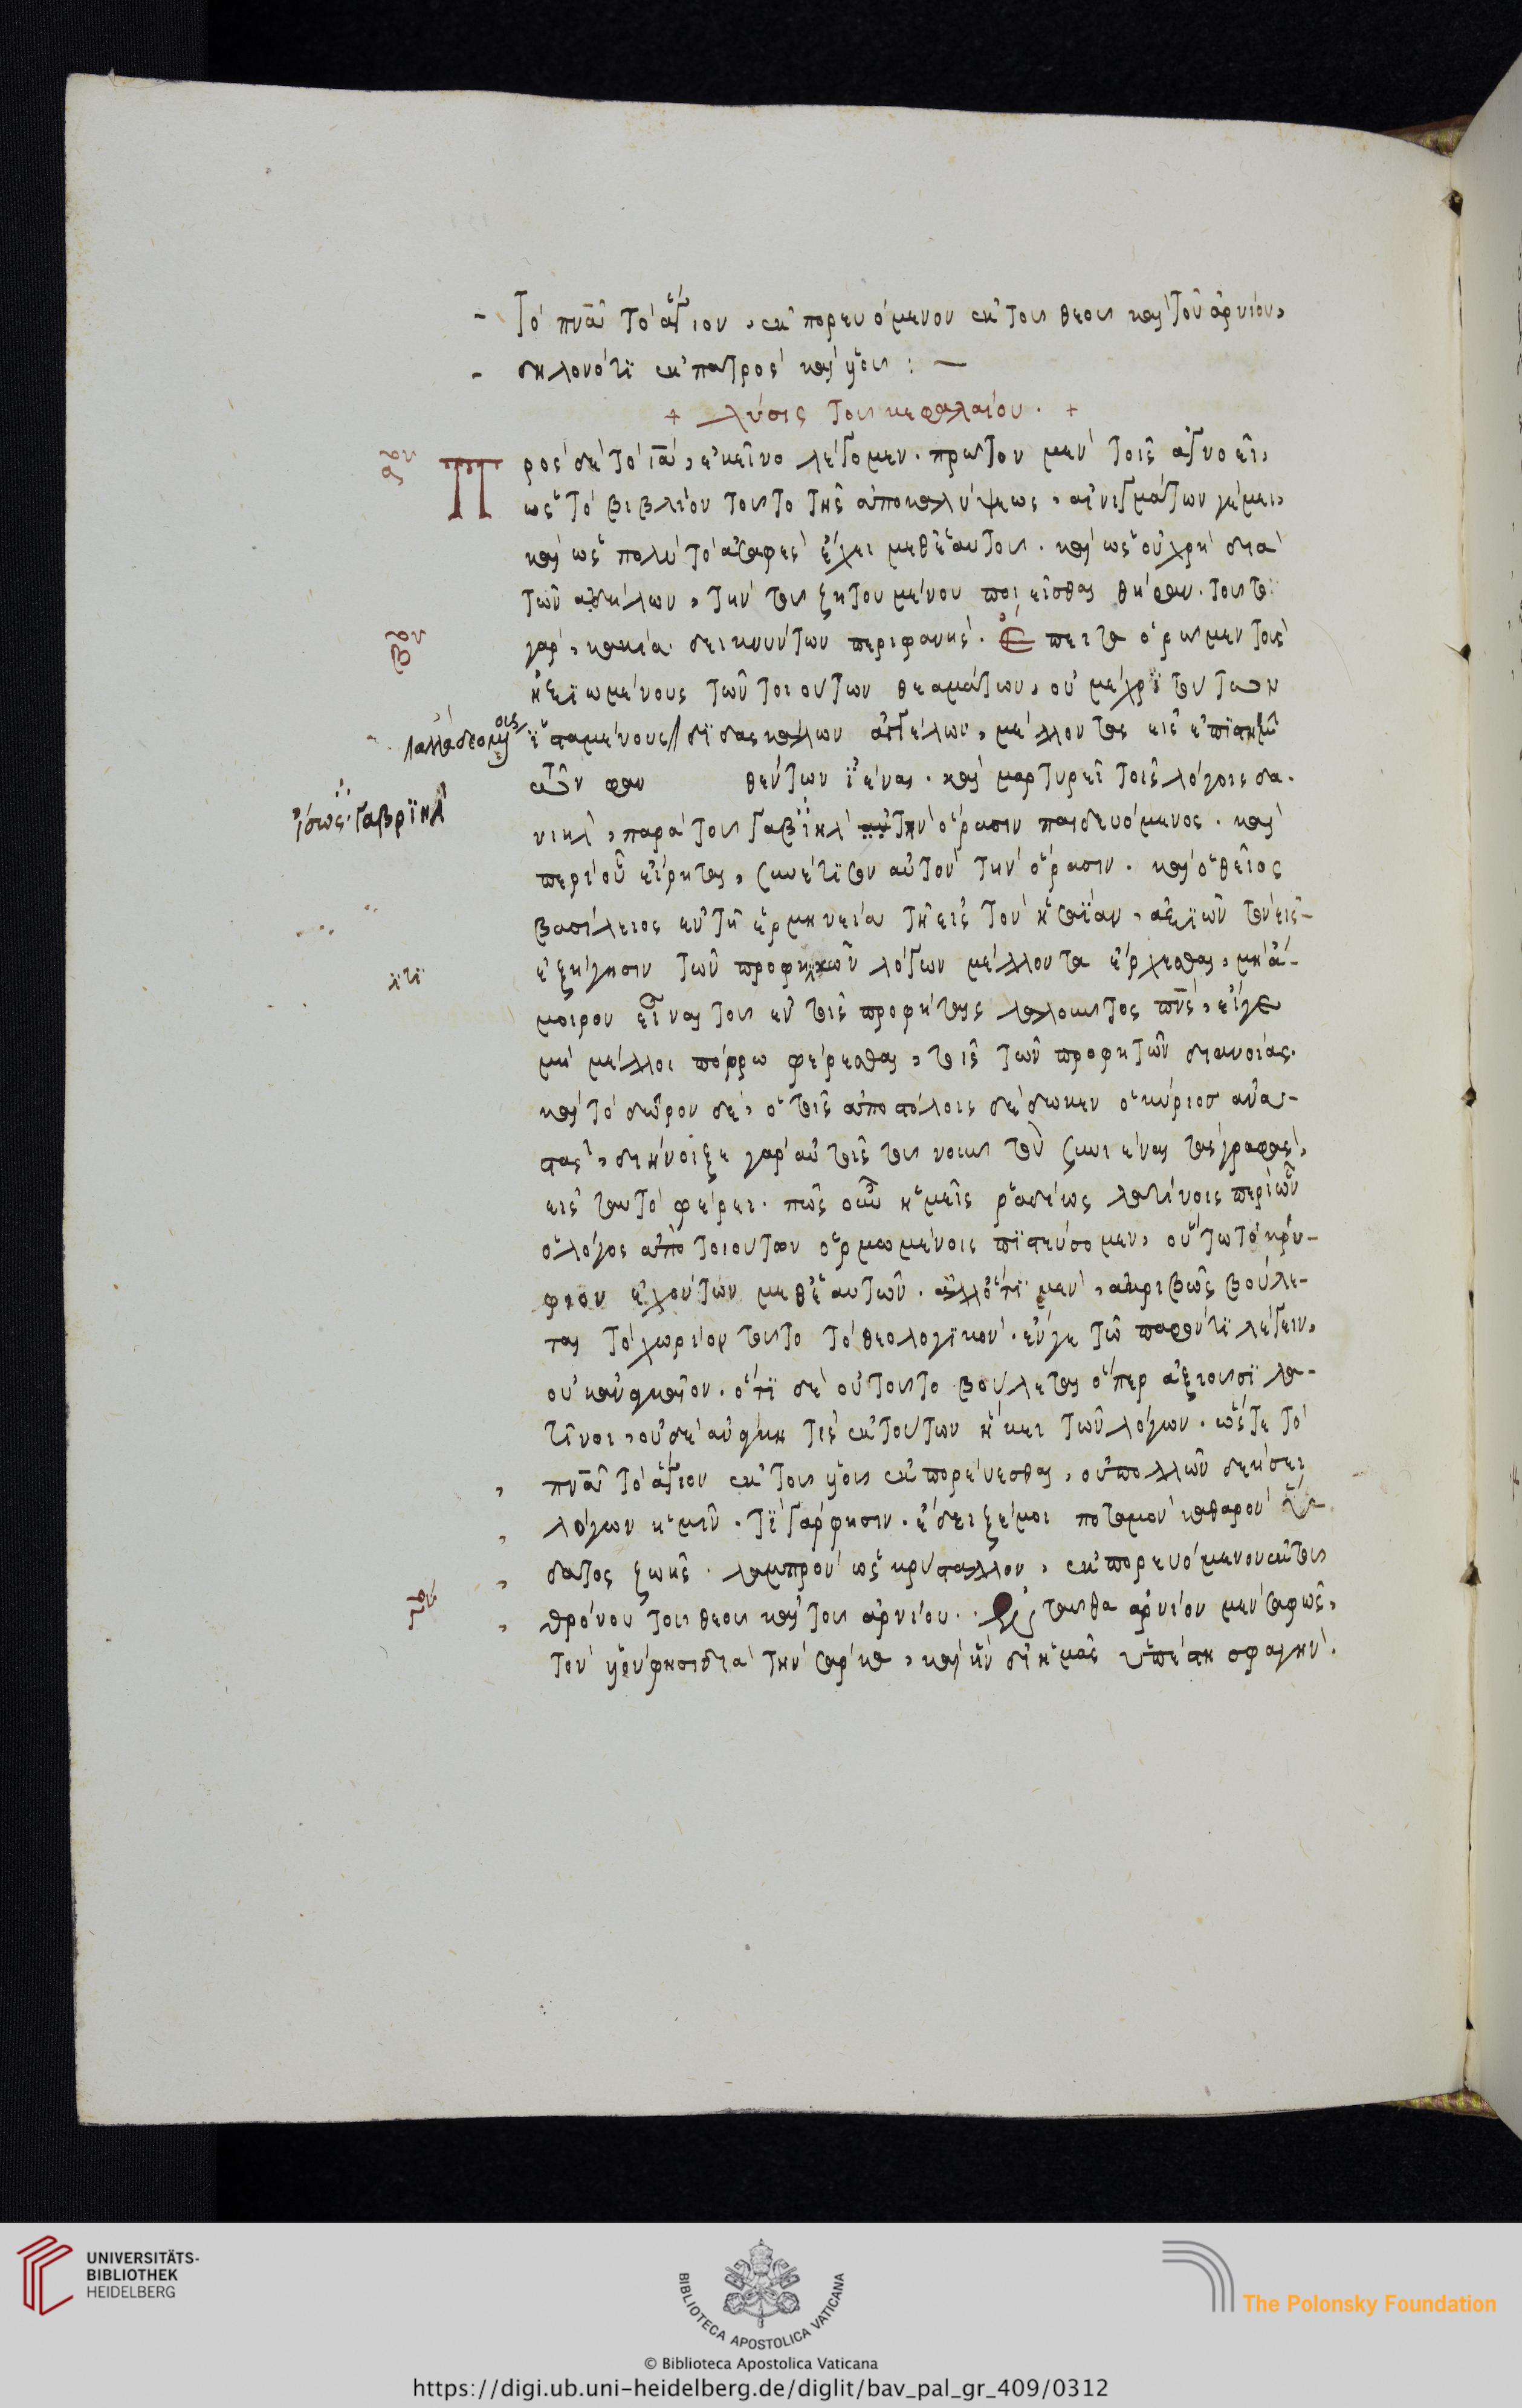 Τὸ πνᾶ τὸ ἅγιον, ἐκπορευόμενον ἐκ τοῦ θεοῦ καὶ τοῦ ἀρνίου,
δηλονότι ἐκ πατρὸς καὶ υἱοῦ : —
+ λύσις τοῦ κεφαλαίου. +
αον
Πρὸς δὲ τὸ ια, ἐκεῖνο λέγομεν. πρῶτον μὲν τοῖς ἀγνοεῖ,
ὡς τὸ βιβλίον τοῦτο τῆς ἀποκαλύψεως, αἰνιγμάτων γέμει,
καὶ ὡς πολὺ τὸ ἀσαφὲς ἔχει μεθ' ἑαυτοῦ. καὶ ὡς οὐ χρὴ διὰ
τῶν ἀδήλων, τὴν τοῦ ζητουμένου ποιεῖσθαι θήραν. τοῦτο
βον
γὰρ, κακία δεικνύντων περιφανής. Ἔπειτα ὁρῶμεν τοὺς
ἠξιωμένους τῶν τοιούτων θεαμάτων, οὐ μέχρι τούτων
ἱσταμένους διδασκάλων ἀγγέλων, μέλλοντας εἰς ἐπιστήμην
τῶν φαν θέντων ἰέναι. καὶ μαρτυρεῖ τοῖς λόγοις δα-
ἴσως. Γαβριὴλ
νιὴλ, παρὰ τοῦ Γαβιὴλ τὴν ὅρασιν παιδευόμενος. καὶ
περὶ οὗ εἴρηται, συνέτισον αὐτὸν τὴν ὅρασιν. καὶ ὁ θεῖος
βασίλειος ἐν τῇ ἑρμηνεία τῇ εἰς τὸν ἡσαΐαν, ἀξιῶν τὸν εἰς
ἐξήγησιν τῶν προφητικῶν λόγων μέλλοντα ἔρχεσθαι, μὴ ἄ-
μοιρον εἶναι τοῦ ἐν τοῖς προφήταις λαλοῦντος πνς, εἴγε
μὴ μέλλοι πόρρω φέρεσθαι, τῆς τῶν προφητῶν διανοίας.
καὶ τὸ δῶρον δὲ, ὃ τοῖς ἀποστόλοις δέδωκεν ὁ κύριος ἀνα-
στὰς, διήνοιξε γὰρ αὐτοῖς τὸν νοῦν τοῦ συνιέναι τὰς γραφὰς,
εἰς ταυτὸ φέρει. πῶς οὖν ἡμεῖς ῥαδίως λατίνοις περὶ ὧν
ὁ λόγος ἀπὸ τοιούτων ὁρμωμένοις πιστεύσομεν, οὕτω τὸ κρύ-
φιον ἐχόντων μεθ' ἑαυτῶν. ἀλλ' ὅτι μὲν, ἀκριβῶς βούλε-
ται τὸ χωρίον τοῦτο τὸ θεολογικὸν. ἔν γε τῷ παρόντι λέγειν,
οὐκ ἀναγκαῖον. ὅτι δὲ οὐ τοῦτο βούλεται ὅπερ ἀξιοῦσι λα-
τῖνοι, οὐδὲ ἀνάγκη τις ἐκ τούτων ἥκει τῶν λόγων. ὥστε τὸ
πνᾶ τὸ ἅγιον ἐκ τοῦ υἱοῦ ἐκπορεύεσθαι, οὐ πολλῶν δεήσει
λόγων ἡμῖν. τί γάρ φησιν. ἔδειξέ μοι ποταμὸν καθαρὸν ὕ-
δατος ζωῆς. λαμπρὸν ὡς κρύσταλλον, ἐκπορευόμενον ἐκ τοῦ
γον
θρόνου τοῦ θεοῦ καὶ τοῦ ἀρνίου. ἐνταῦθα ἀρνίον μὲν σαφῶς,
τὸν υἱόν φησι διὰ τὴν σάρκα, καὶ ἣν δι' ἡμᾶς ὑπέστη σφαγὴν.
UNIVERSITÄTS-
BIBLIOTHEK
HEIDELBERG
BIBLIOTECA APOSTOLICA VATICANA
The Polonsky Foundation
© Biblioteca Apostolica Vaticana
https://digi.ub.uni-heidelberg.de/diglit/bav_pal_gr_409/0312